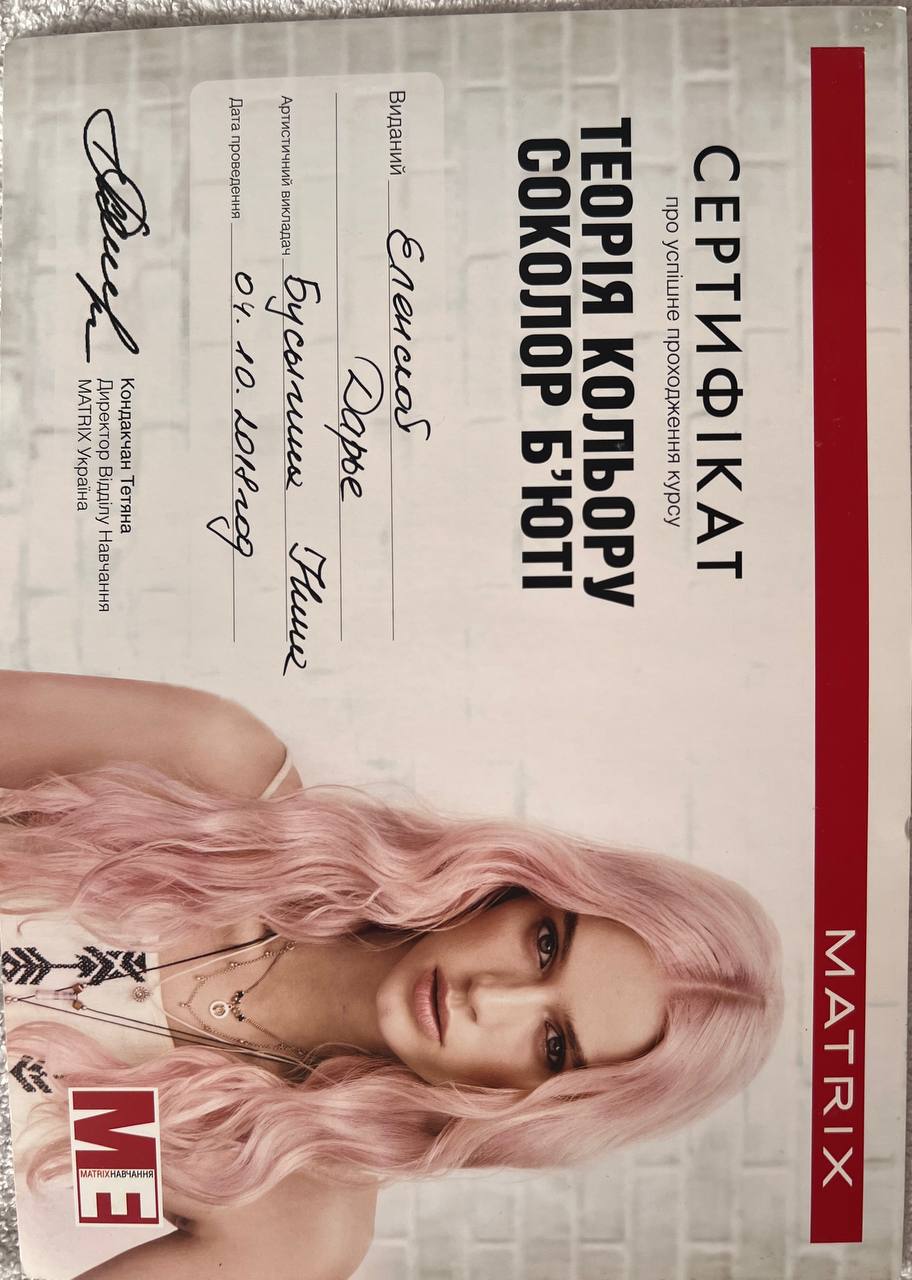 MATRIX
СЕРТИФІКАТ
про успішне проходження курсу
ТЕОРІЯ КОЛЬОРУ
СОКОЛОР Б'ЮТІ
Виданий Еленской
Дарье
Артистичний викладач Бусыгина Нина
Дата проведення 04.10.2018год
Кондакчан Тетяна
Директор Відділу Навчання
MATRIX Україна
ME
MATRIXНАВЧАННЯ